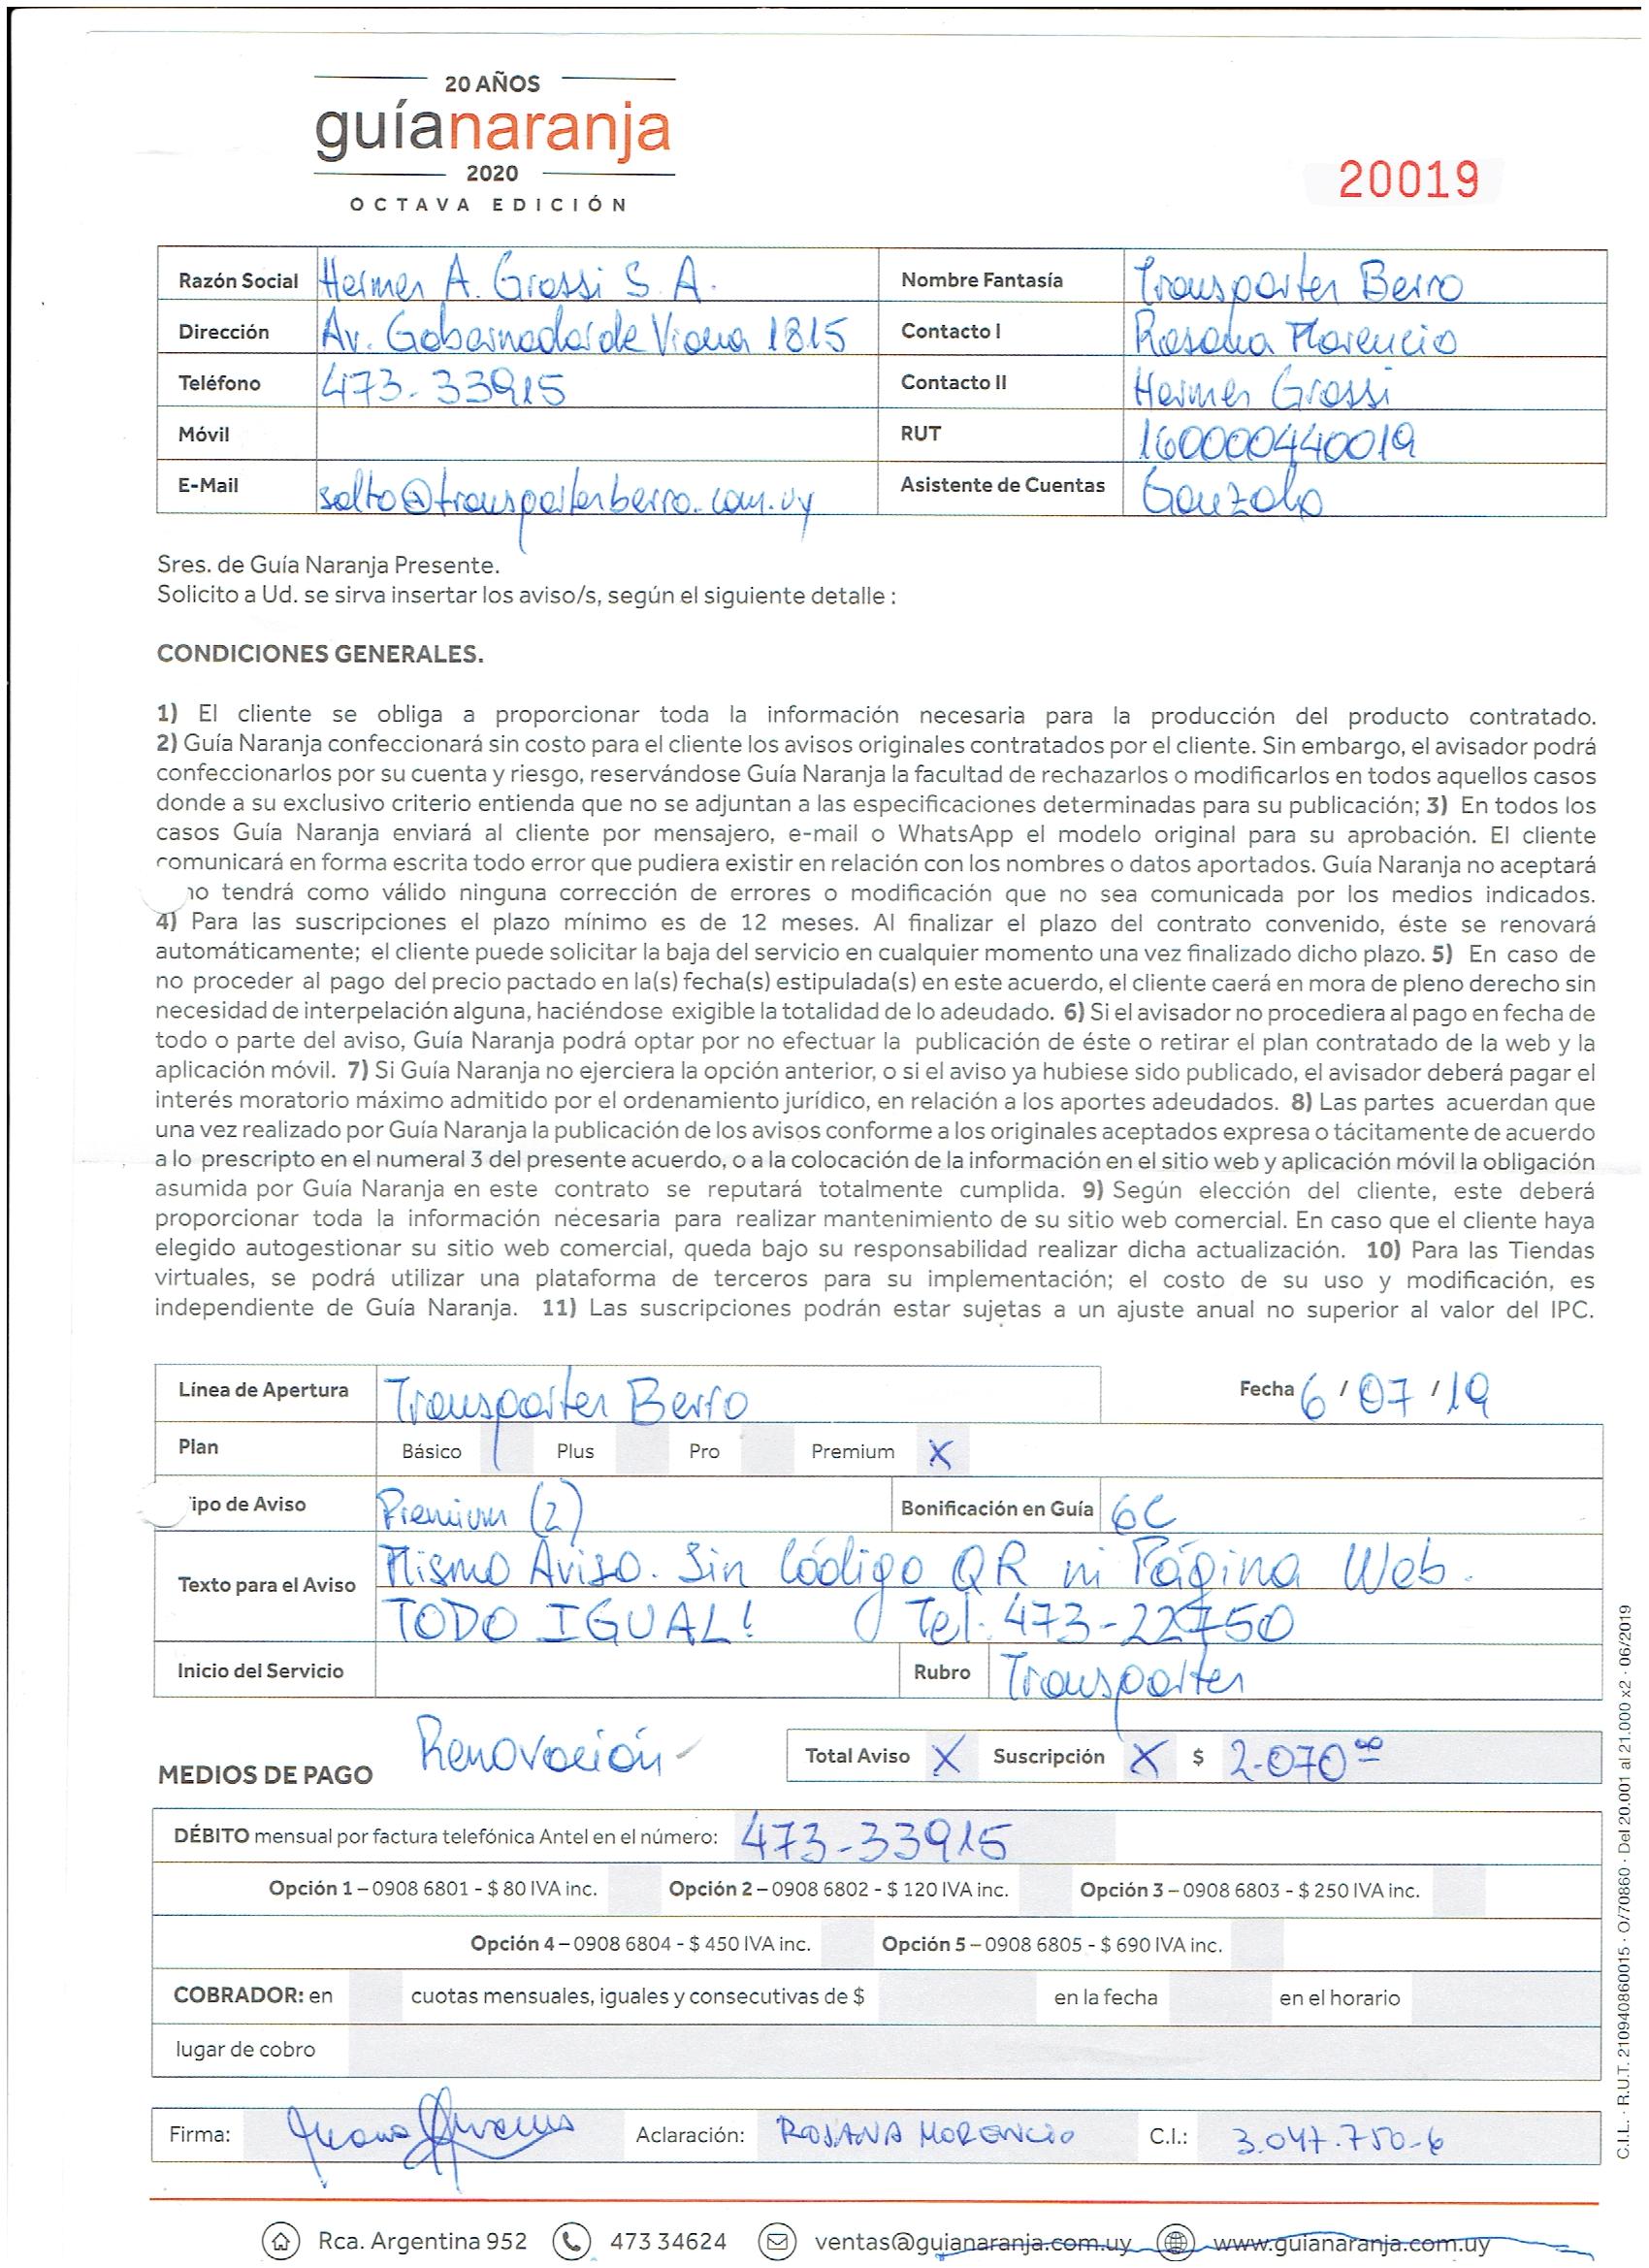 20 AÑOS
guíanaranja
2020
OCTAVA EDICIÓN
20019
Razón Social Hermes A. Grossi S.A. Nombre Fantasía Transportes Berro
Dirección Av. Gobernador de Viana 1815 Contacto I Rosana Morencio
Teléfono 473-33915 Contacto II Hermes Grossi
Móvil RUT 160000440019
E-Mail salto@transportesberro.com.uy Asistente de Cuentas Gonzalo
Sres. de Guía Naranja Presente.
Solicito a Ud. se sirva insertar los aviso/s, según el siguiente detalle :
CONDICIONES GENERALES.
1) El cliente se obliga a proporcionar toda la información necesaria para la producción del producto contratado.
2) Guía Naranja confeccionará sin costo para el cliente los avisos originales contratados por el cliente. Sin embargo, el avisador podrá
confeccionarlos por su cuenta y riesgo, reservándose Guía Naranja la facultad de rechazarlos o modificarlos en todos aquellos casos
donde a su exclusivo criterio entienda que no se adjuntan a las especificaciones determinadas para su publicación; 3) En todos los
casos Guía Naranja enviará al cliente por mensajero, e-mail o WhatsApp el modelo original para su aprobación. El cliente
comunicará en forma escrita todo error que pudiera existir en relación con los nombres o datos aportados. Guía Naranja no aceptará
no tendrá como válido ninguna corrección de errores o modificación que no sea comunicada por los medios indicados.
4) Para las suscripciones el plazo mínimo es de 12 meses. Al finalizar el plazo del contrato convenido, éste se renovará
automáticamente; el cliente puede solicitar la baja del servicio en cualquier momento una vez finalizado dicho plazo. 5) En caso de
no proceder al pago del precio pactado en la(s) fecha(s) estipulada(s) en este acuerdo, el cliente caerá en mora de pleno derecho sin
necesidad de interpelación alguna, haciéndose exigible la totalidad de lo adeudado. 6) Si el avisador no procediera al pago en fecha de
todo o parte del aviso, Guía Naranja podrá optar por no efectuar la publicación de éste o retirar el plan contratado de la web y la
aplicación móvil. 7) Si Guía Naranja no ejerciera la opción anterior, o si el aviso ya hubiese sido publicado, el avisador deberá pagar el
interés moratorio máximo admitido por el ordenamiento jurídico, en relación a los aportes adeudados. 8) Las partes acuerdan que
una vez realizado por Guía Naranja la publicación de los avisos conforme a los originales aceptados expresa o tácitamente de acuerdo
a lo prescripto en el numeral 3 del presente acuerdo, o a la colocación de la información en el sitio web y aplicación móvil la obligación
asumida por Guía Naranja en este contrato se reputará totalmente cumplida. 9) Según elección del cliente, este deberá
proporcionar toda la información necesaria para realizar mantenimiento de su sitio web comercial. En caso que el cliente haya
elegido autogestionar su sitio web comercial, queda bajo su responsabilidad realizar dicha actualización. 10) Para las Tiendas
virtuales, se podrá utilizar una plataforma de terceros para su implementación; el costo de su uso y modificación, es
independiente de Guía Naranja. 11) Las suscripciones podrán estar sujetas a un ajuste anual no superior al valor del IPC.
Línea de Apertura Transportes Berro Fecha 6 / 07 / 19
Plan Básico Plus Pro Premium X
Tipo de Aviso Premium (2) Bonificación en Guía 6C
Texto para el Aviso Mismo Aviso. Sin Código QR ni Página Web.
TODO IGUAL! Tel: 473-22750
Inicio del Servicio Rubro Transportes
Renovación
MEDIOS DE PAGO Total Aviso X Suscripción X $ 2.070 00
DÉBITO mensual por factura telefónica Antel en el número: 473-33915
Opción 1 – 0908 6801 - $ 80 IVA inc. Opción 2 – 0908 6802 - $ 120 IVA inc. Opción 3 – 0908 6803 - $ 250 IVA inc.
Opción 4 – 0908 6804 - $ 450 IVA inc. Opción 5 – 0908 6805 - $ 690 IVA inc.
COBRADOR: en cuotas mensuales, iguales y consecutivas de $ en la fecha en el horario
lugar de cobro
Firma: Aclaración: ROSANA MORENCIO C.I.: 3.047.750-6
Rca. Argentina 952 473 34624 ventas@guianaranja.com.uy www.guianaranja.com.uy
C.I.L. · R.U.T. 210940860015 · O/70860 · Del 20.001 al 21.000 x2 · 06/2019